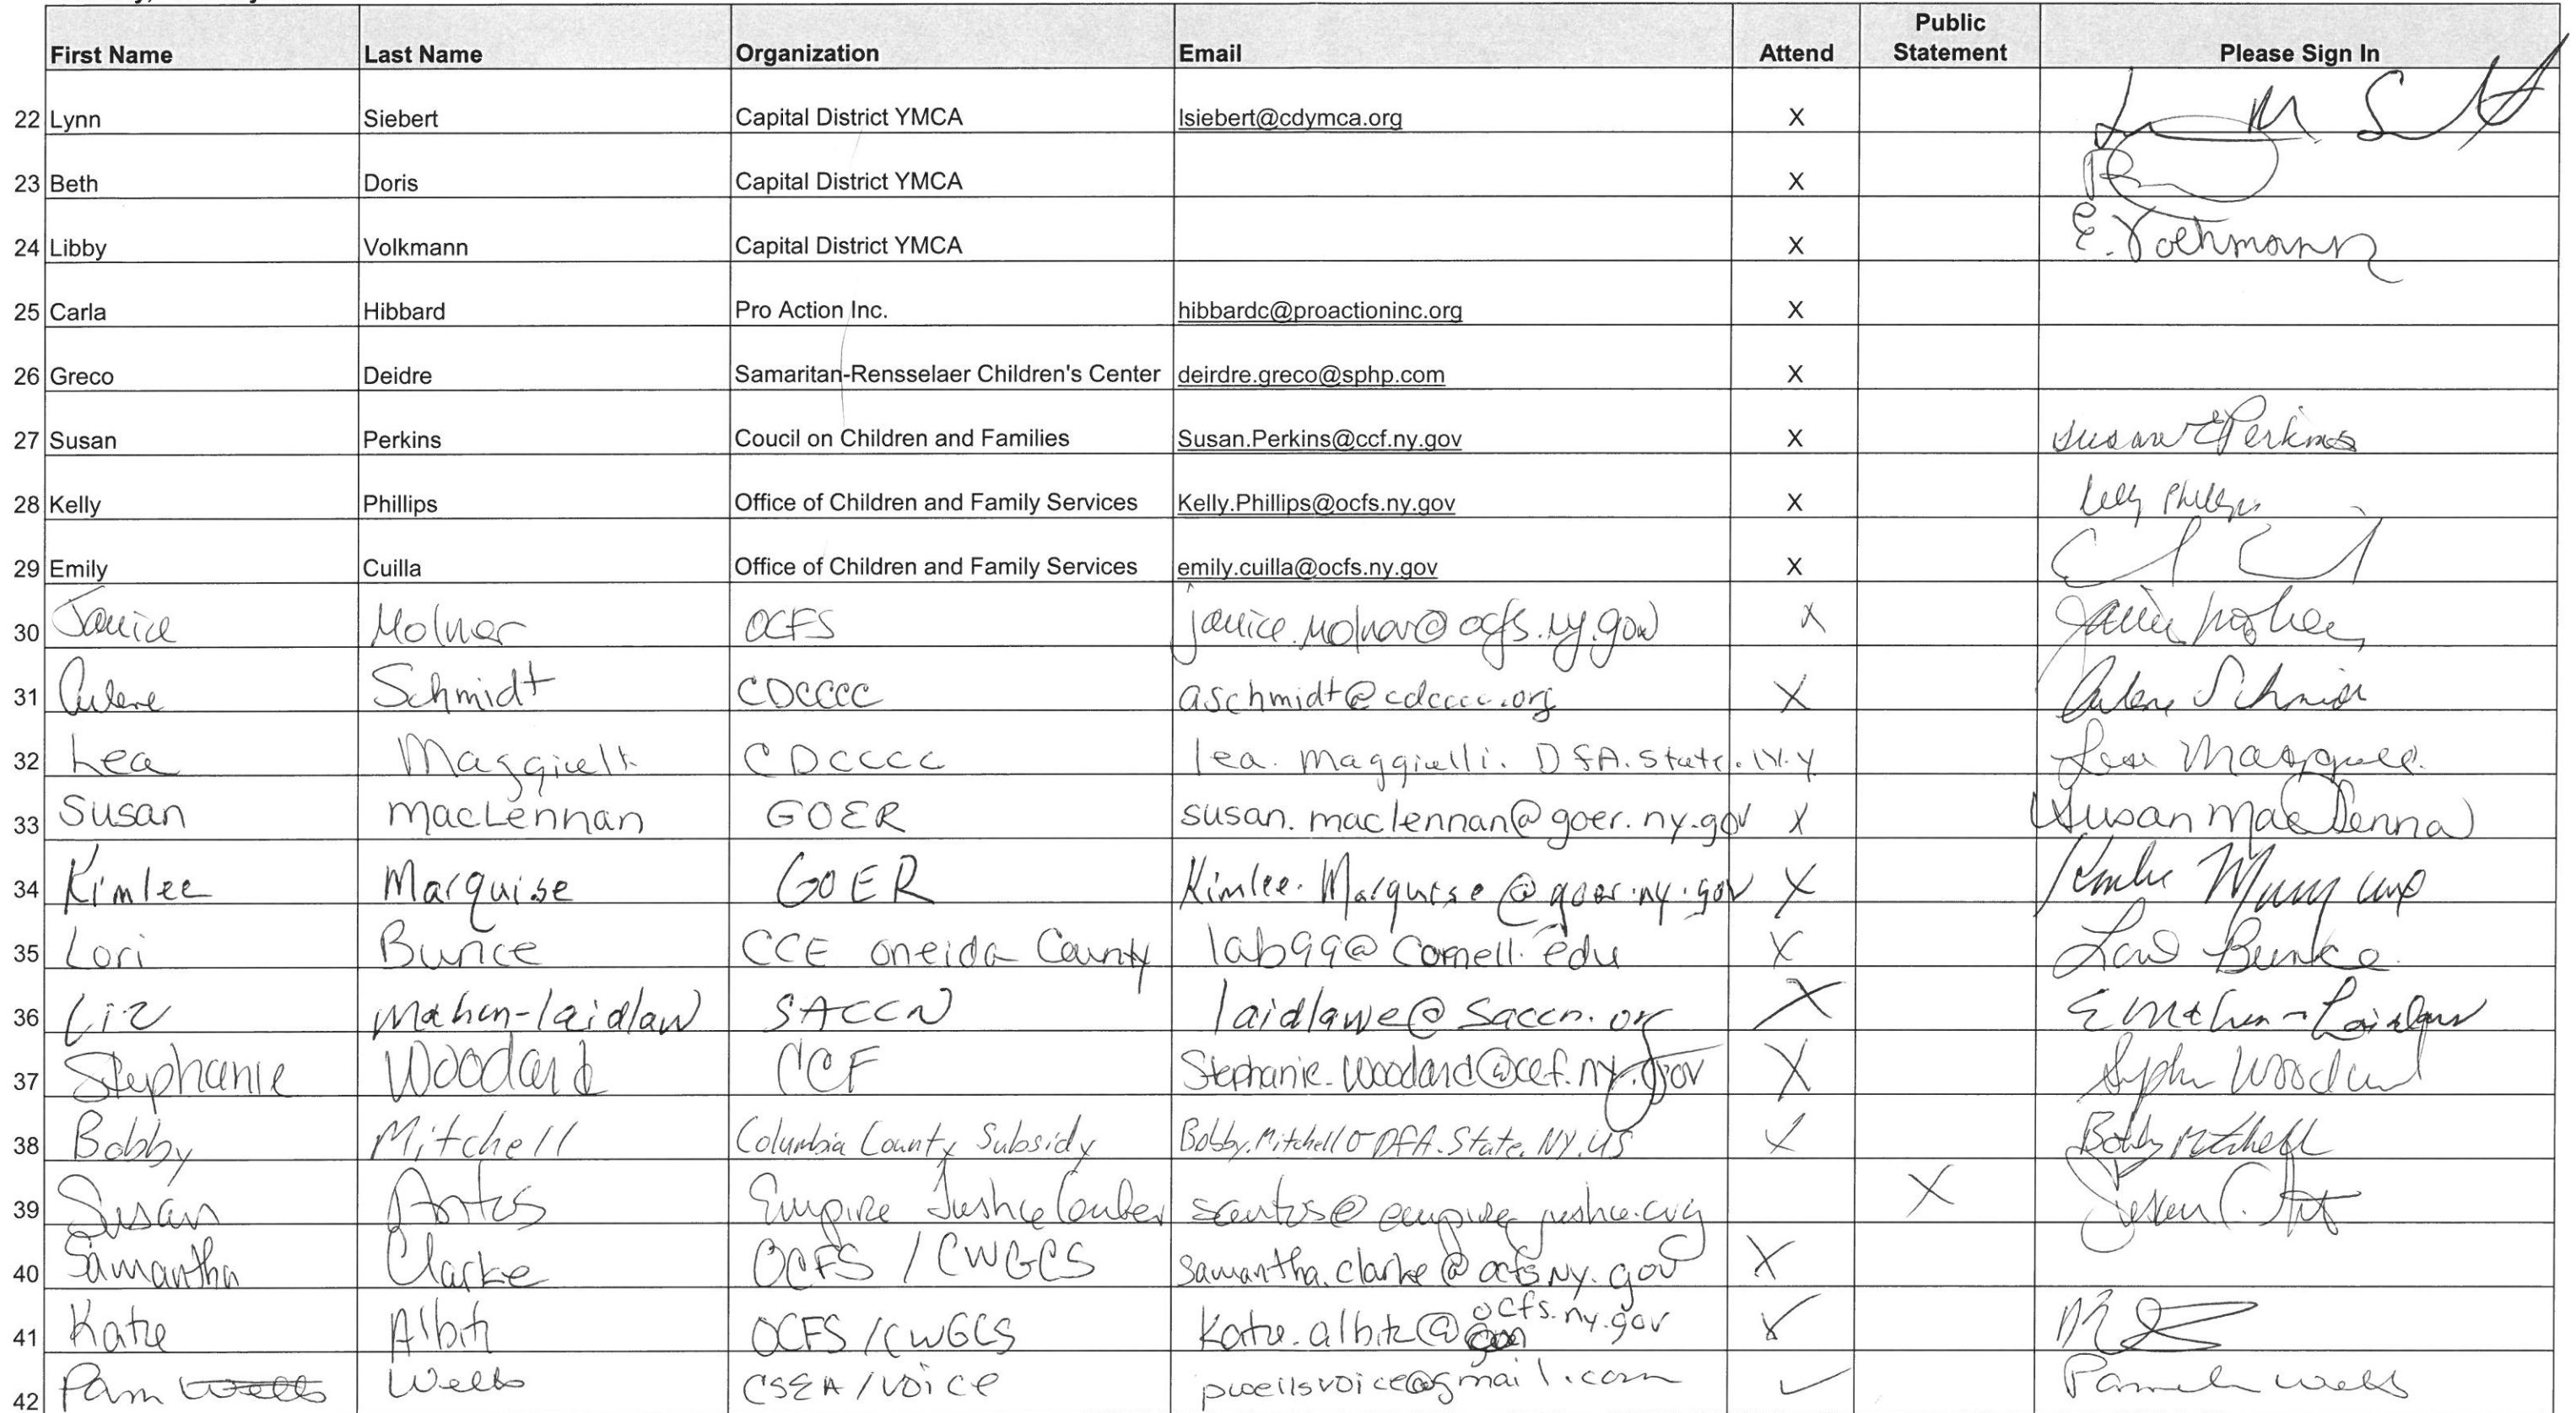 First Name Last Name Organization Email Attend Public Statement Please Sign In
22 Lynn Siebert Capital District YMCA lsiebert@cdymca.org X
23 Beth Doris Capital District YMCA X
24 Libby Volkmann Capital District YMCA X E. Volkmann
25 Carla Hibbard Pro Action Inc. hibbardc@proactioninc.org X
26 Greco Deidre Samaritan-Rensselaer Children's Center deirdre.greco@sphp.com X
27 Susan Perkins Coucil on Children and Families Susan.Perkins@ccf.ny.gov X Susan E Perkins
28 Kelly Phillips Office of Children and Family Services Kelly.Phillips@ocfs.ny.gov X Kelly Phillips
29 Emily Cuilla Office of Children and Family Services emily.cuilla@ocfs.ny.gov X
30 Janice Molnar OCFS janice.molnar@ocfs.ny.gov X Janice Molnar
31 Arlene Schmidt CDCCCC aschmidt@cdcccc.org X Arlene Schmidt
32 Lea Maggiulli CDCCCC lea.maggiulli.DFA.State.N.Y Lea Maggiulli
33 Susan MacLennan GOER susan.maclennan@goer.ny.gov X Susan MacLennan
34 Kimlee Marquise GOER Kimlee.Marquise@goer.ny.gov X Kimlee Marquise
35 Lori Bunce CCE Oneida County lab99@cornell.edu X Lori Bunce
36 Liz Mahen-laidlaw SACCN laidlawe@saccn.org X E Mahen-Laidlaw
37 Stephanie Woodard CCF Stephanie.Woodard@ccf.ny.gov X Stephanie Woodard
38 Bobby Mitchell Columbia County Subsidy Bobby.Mitchell@DFA.State.NY.US X Bobby Mitchell
39 Susan Antos Empire Justice Center santos@empirejustice.org X Susan C. Antos
40 Samantha Clarke OCFS / CWGCS samantha.clarke@ocfs.ny.gov X
41 Katie Albitz OCFS / CWGCS Katie.albitz@ocfs.ny.gov X
42 Pam Wells Wells CSEA / VOICE pwellsvoice@gmail.com ✓ Pamela Wells